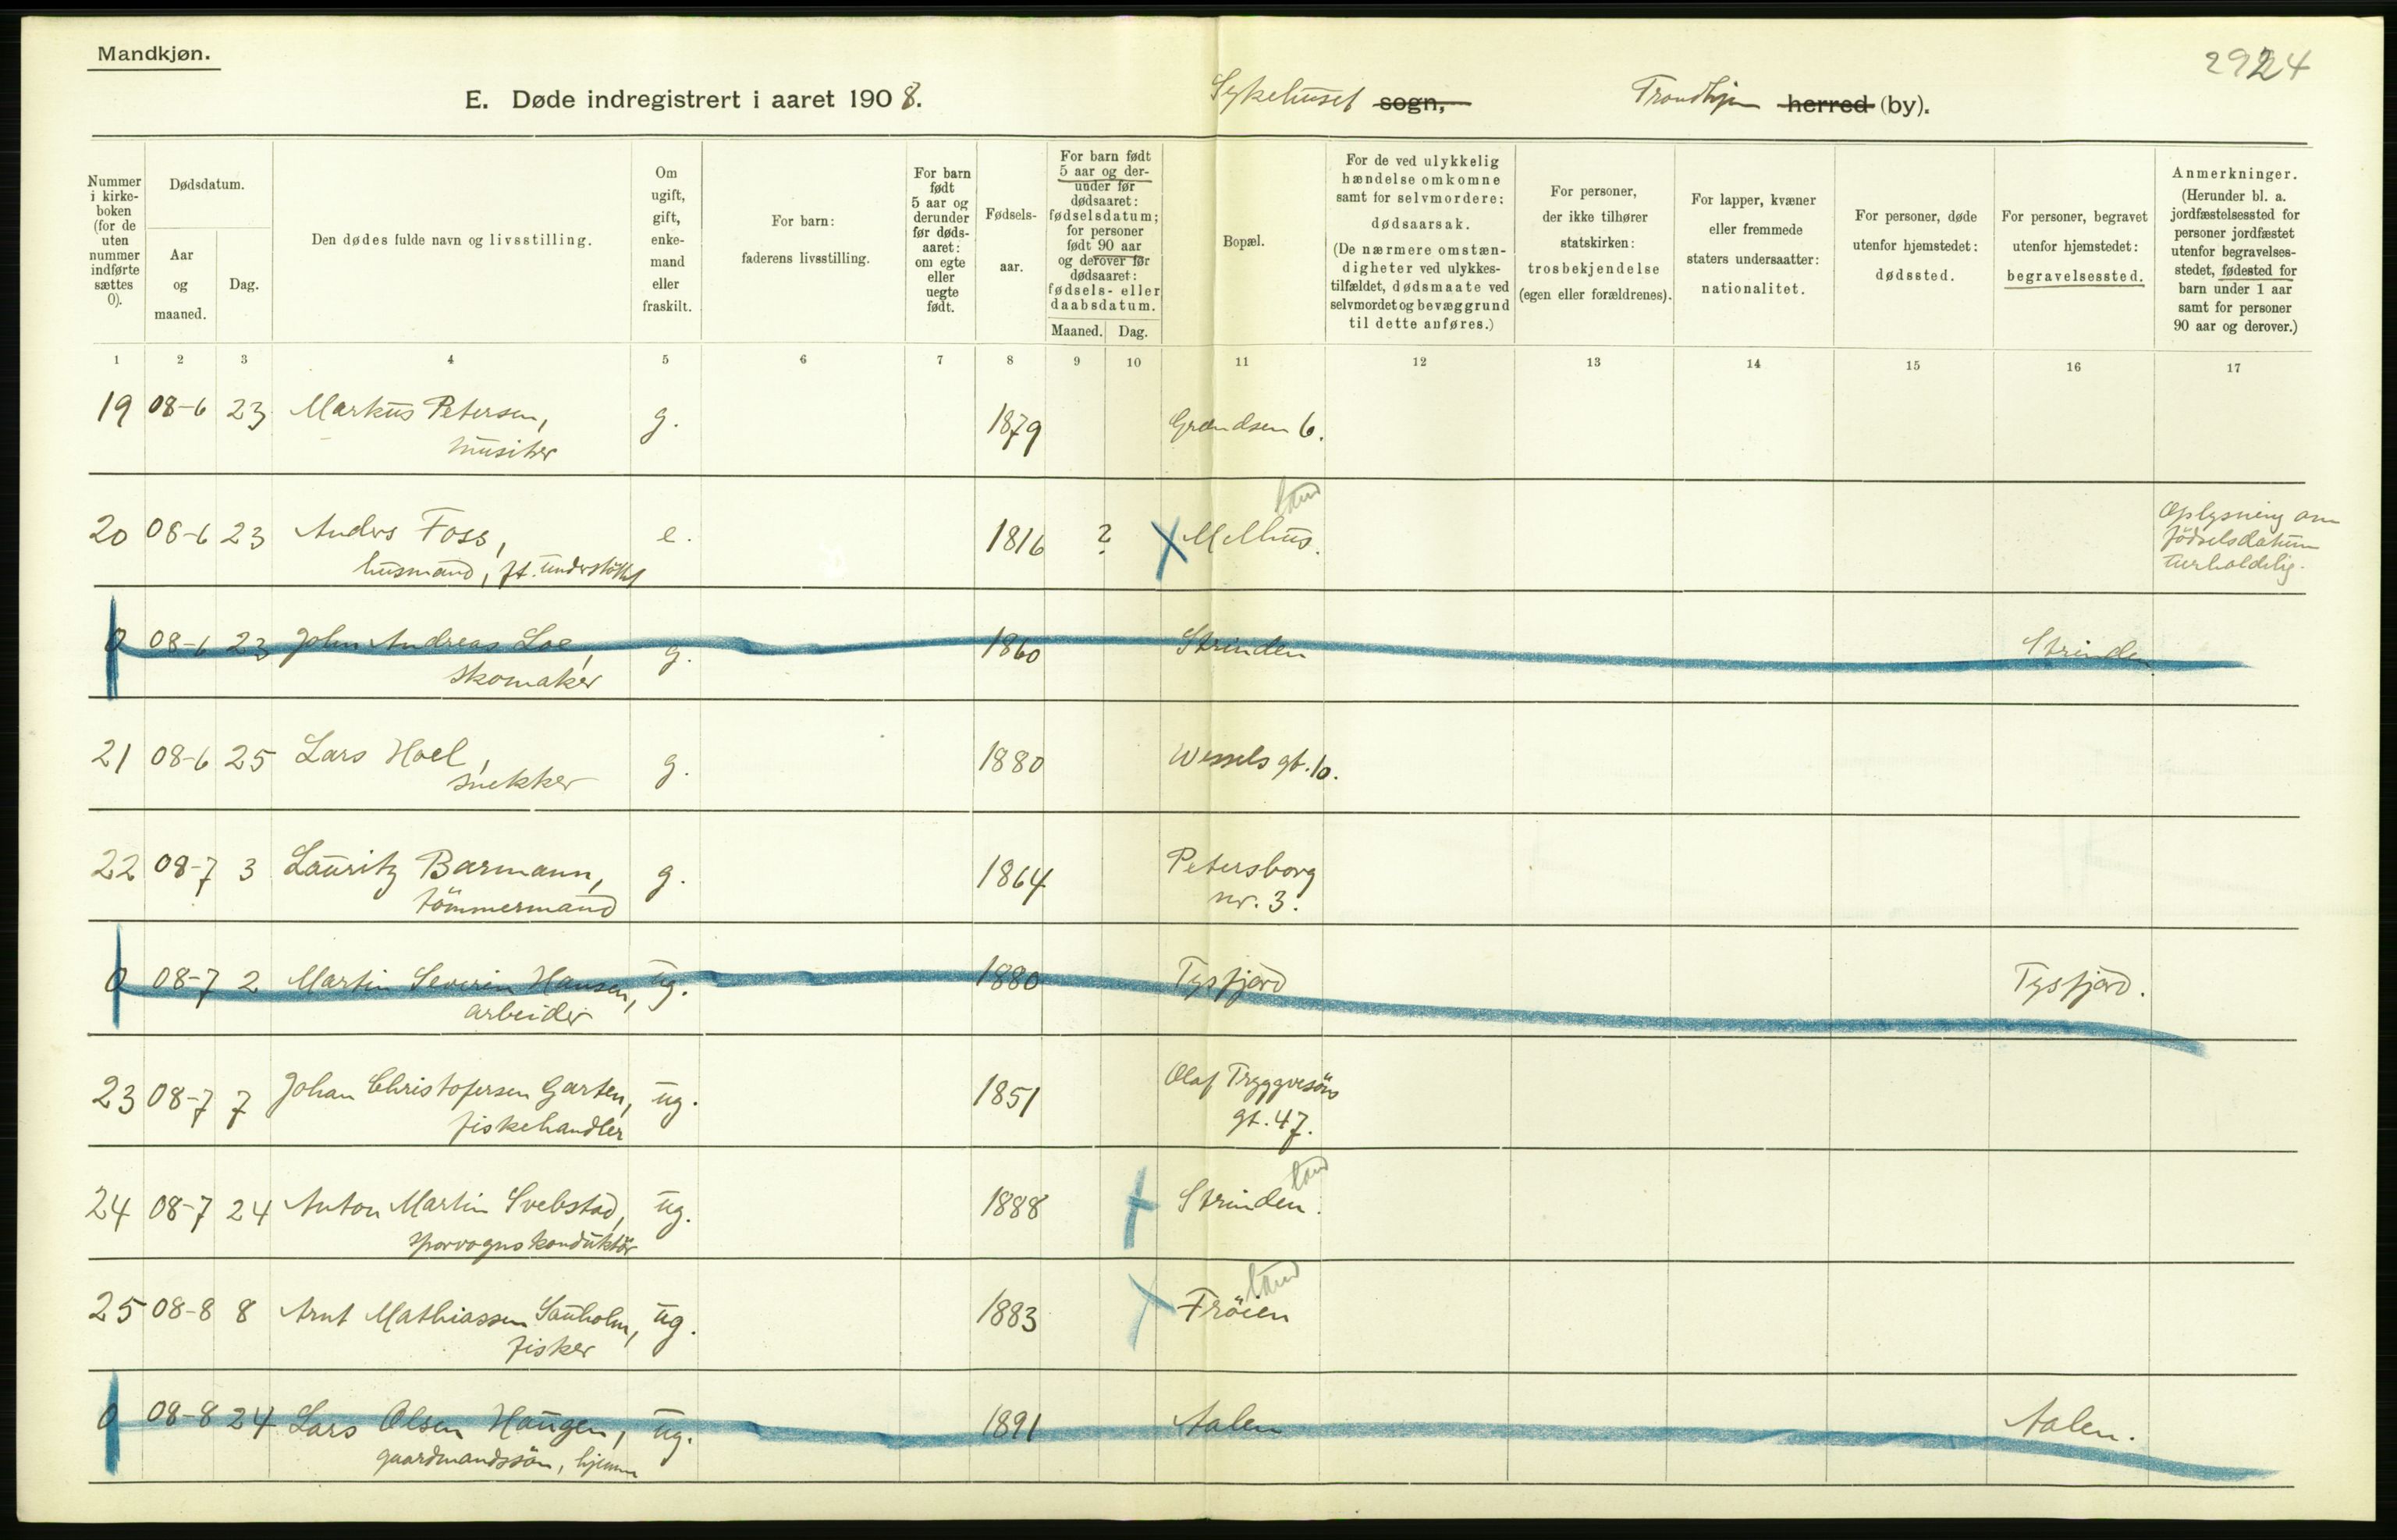 Mandkjøn.
2924
E. Døde indregistrert i aaret 1908. Sykehuset sogn, Trondhjem herred (by).
Nummer i kirke- boken (for de uten nummer indførte sættes 0).
Dødsdatum.
Aar og maaned.
Dag.
Den dødes fulde navn og livsstilling.
Om ugift, gift, enke- mand eller fraskilt.
For barn: faderens livsstilling.
For barn født 5 aar og derunder før døds- aaret: om egte eller uegte født.
Fødsels- aar.
For barn født 5 aar og der- under før dødsaaret: fødselsdatum; for personer født 90 aar og derover før dødsaaret: fødsels- eller daabsdatum.
Maaned. Dag.
Bopæl.
For de ved ulykkelig hændelse omkomne samt for selvmordere: dødsaarsak. (De nærmere omstæn- digheter ved ulykkes- tilfældet, dødsmaate ved selvmordet og bevæggrund til dette anføres.)
For personer, der ikke tilhører statskirken: trosbekjendelse (egen eller forældrenes).
For lapper, kvæner eller fremmede staters undersaatter: nationalitet.
For personer, døde utenfor hjemstedet: dødssted.
For personer, begravet utenfor hjemstedet: begravelsessted.
Anmerkninger. (Herunder bl. a. jordfæstelsessted for personer jordfæstet utenfor begravelses- stedet, fødested for barn under 1 aar samt for personer 90 aar og derover.)
1 2 3 4 5 6 7 8 9 10 11 12 13 14 15 16 17
19 08-6 23 Markus Petersen, g. 1879 Grændsen 6.
musiker
land
20 08-6 23 Anders Foss, e. 1816 ? Melhus. Oplysning om
husmand, ft. understöttet födselsdatum
uerholdelig.
0 08-6 23 John Andreas Loe, g. 1860 Strinden Strinden
skomaker
21 08-6 25 Lars Hoel, g. 1880 Wessels gt. 10.
snekker
22 08-7 3 Lauritz Barmann, g. 1864 Petersborg
tömmermand nr. 3.
0 08-7 2 Martin Severin Hansen, ug. 1880 Tysfjord Tysfjord.
arbeider
23 08-7 7 Johan Christofersen Garten, ug. 1851 Olaf Tryggvesöns
fiskehandler gt. 47.
land
24 08-7 24 Anton Martin Svebstad, ug. 1888 Strinden.
sporvognskonduktör
land
25 08-8 8 Arnt Mathiassen Sauholm, ug. 1883 Fröien
fisker
0 08-8 24 Lars Olsen Haugen, ug. 1891 Aalen Aalen.
gaardmandssön, hjemme